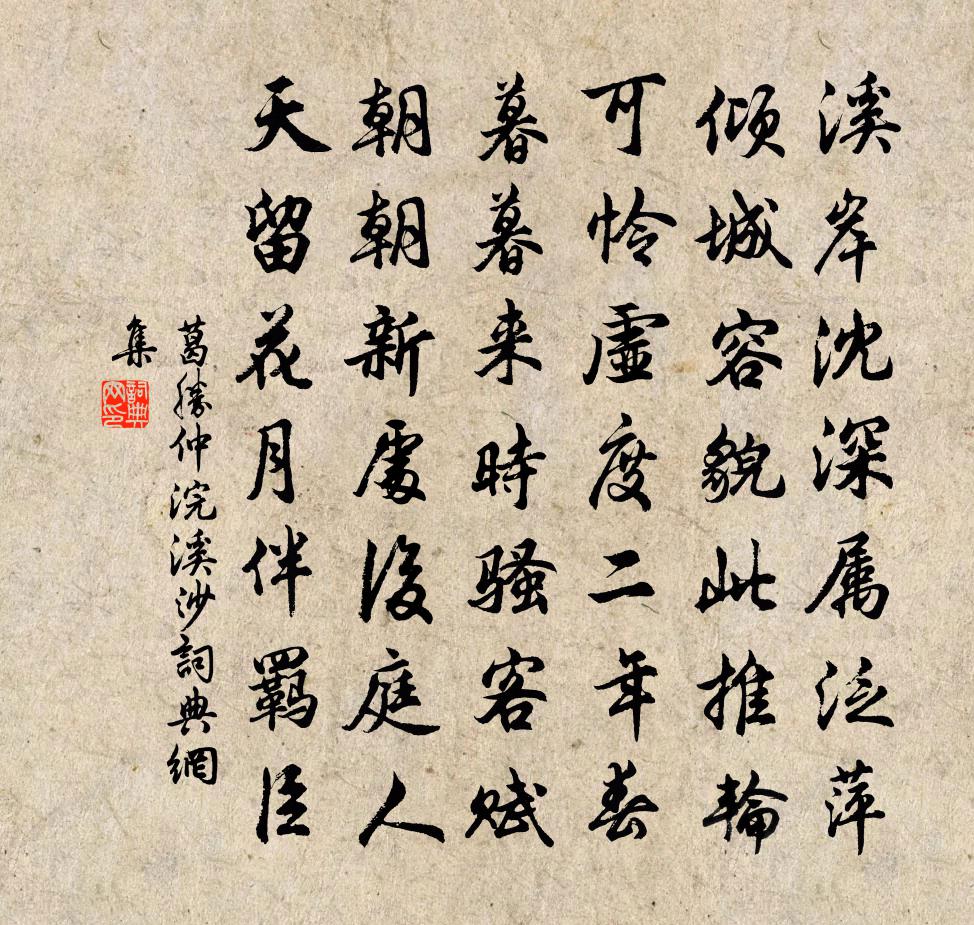 溪岸沈深属泛萍
倾城容貌此推輪
可怜虛度二年春
暮暮来時騷客賦
朝朝新處後庭人
天留花月伴羈臣
葛勝仲浣溪沙詞典網
集
詞典
网印